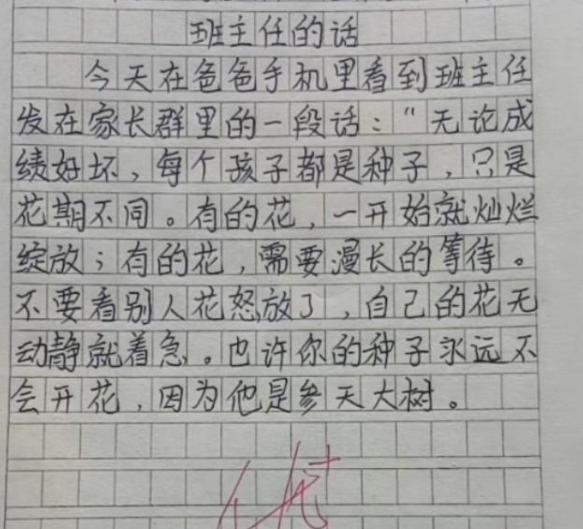 班主任的话
今天在爸爸手机里看到班主任
发在家长群里的一段话：“无论成
绩好坏，每个孩子都是种子，只是
花期不同。有的花，一开始就灿烂
绽放；有的花，需要漫长的等待。
不要看别人花怒放了，自己的花无
动静就着急。也许你的种子永远不
会开花，因为他是参天大树。
优+